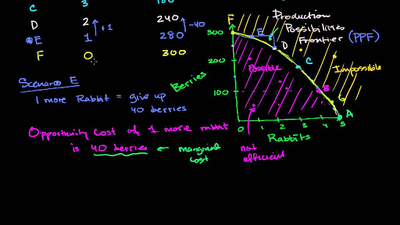 C 3 180
D 2 +1 240 -40
E 1 280
F 0 300
Scenario E
1 more Rabbit = give up
40 berries
Opportunity Cost of 1 more rabbit
is 40 berries ← marginal
cost
not
efficient
Berries
300
200
100
0 1 2 3 4 5
Rabbits
F
E
D
C
B
G
A
Production
Possibilities
Frontier (PPF)
Possible
Impossible